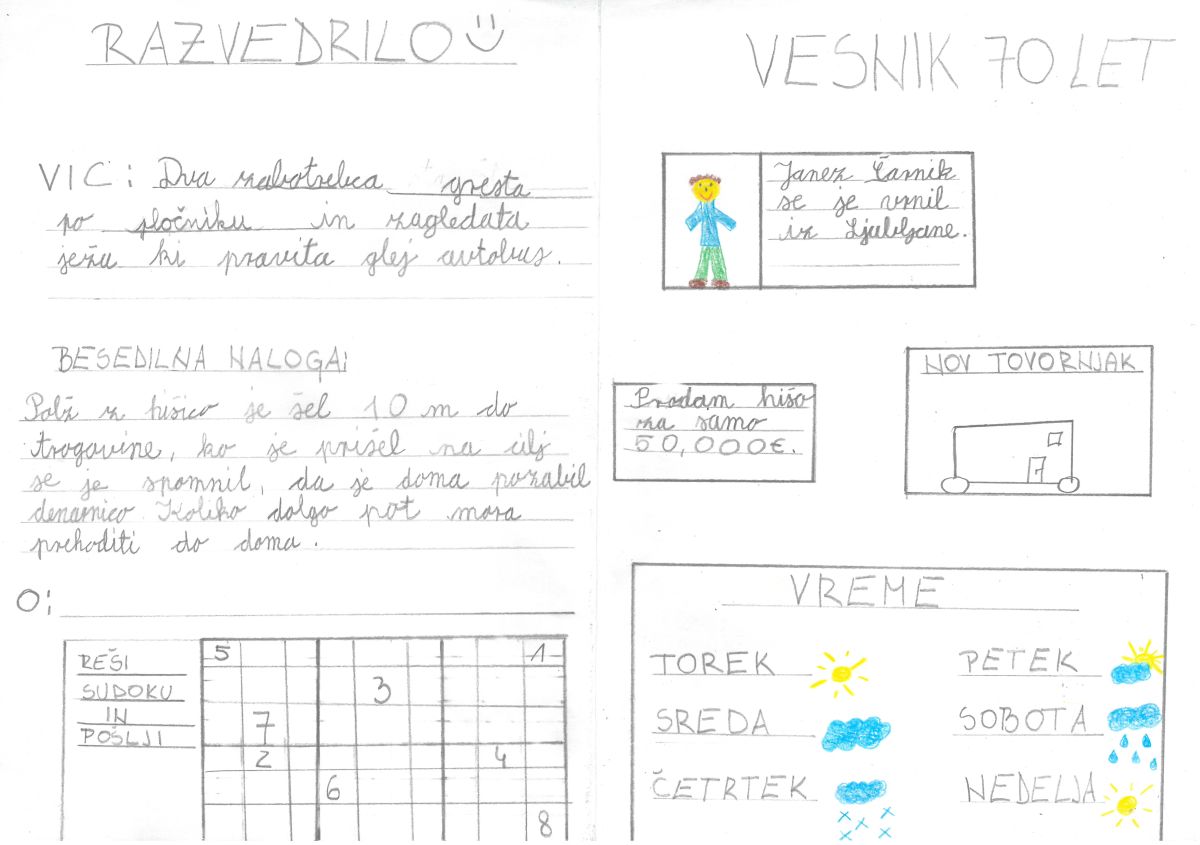 RAZVEDRILO
VIC: Dva zobotrebca gresta
po pločniku in zagledata
ježa ki pravita glej avtobus.
BESEDILNA NALOGA:
Polž z hišico je šel 10 m do
trogovine, ko je prišel na cilj
se je spomnil, da je doma pozabil
denarnico. Koliko dolgo pot mora
prehoditi do doma.
O:
REŠI
SUDOKU
IN
POŠLJI
5 1
3
7
2 4
6
8
VESNIK 70 LET
Janez Čarnik
se je vrnil
iz Ljubljane.
Prodam hišo
za samo
50,000€.
NOV TOVORNJAK
VREME
TOREK
SREDA
ČETRTEK
PETEK
SOBOTA
NEDELJA